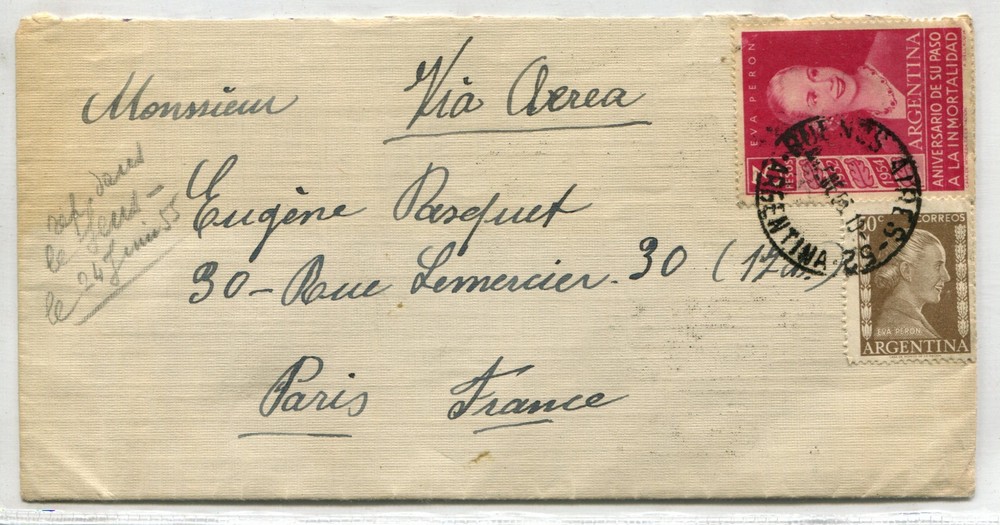 Monssieur
Via Aerea
Eugène Pasquet
30 - Rue Lemercier 30 (17
Paris France
dans
le
le 24 Juin 55
EVA PERON
ARGENTINA
ANIVERSARIO DE SU PASO
A LA INMORTALIDAD
3
PESOS
BUENOS AIRES - 2
ARGENTINA
50c CORREOS
EVA PERON
ARGENTINA